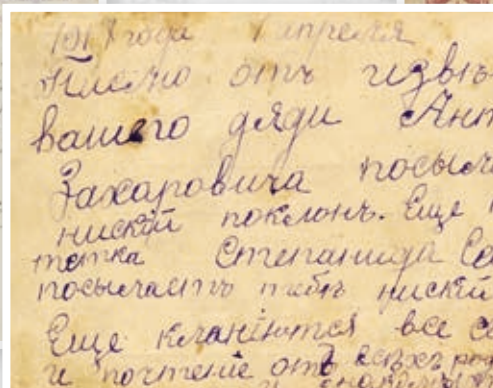 1917 года 1 апреля
Писмо отъ извѣ
вашего дяди Ант
Захаровича посыл
ниский поклонъ. Еще
тетка Степанида Са
посылаетъ тебѣ ниский
Еще кланіются все с
и почтение отъ всѣхъ